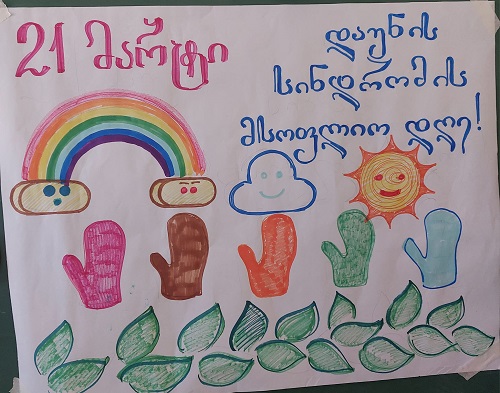 21 მარტი
დაუნის
სინდრომის
მსოფლიო დღე!